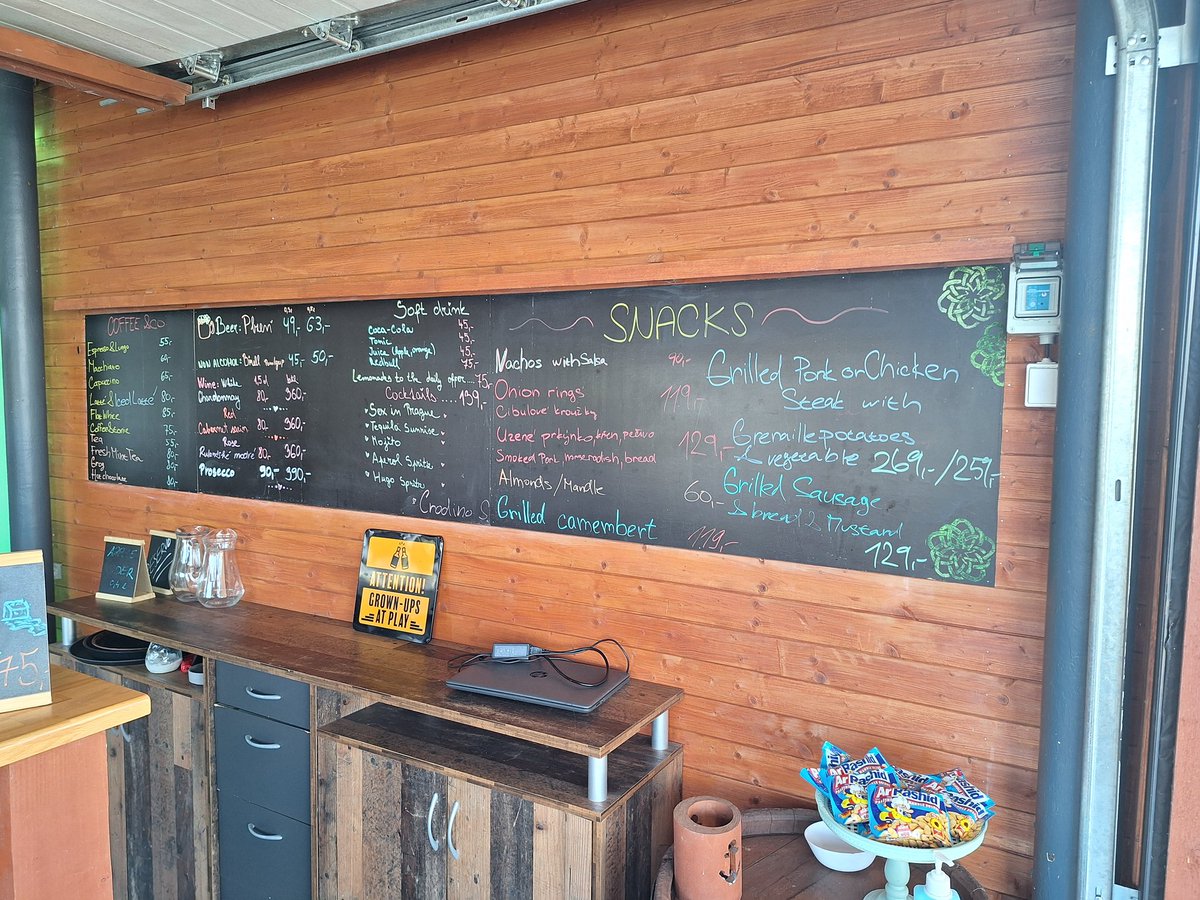 COFFEE &CO
Espresso&Lungo 55,-
Macchiato 69,-
Capuccino 65,-
Latté & Iced Latté 80,-
Flat Whee 85,-
Coffee&Tonic 75,-
Tea 55,-
Fresh Mint Tea 80,-
Grog 80,-
Hot chocolate 80,-
Beer: 49,- 63,-
NON ALCOHOL: 45,- 50,-
Wine: White
Chardonnay 80,- 360,-
Red
80,- 360,-
Rose
Rulandské modré 80,- 360,-
Prosecco 90,- 390,-
Soft drink
Coca-Cola 45,-
Tonic 45,-
Juice (Apple, orange) 45,-
Redbull 75,-
Lemonades to the daily offer....75,-
Cocktails....139,-
Sex in Prague
Tequila Sunrise
Mojito
Aperol Spritz
Hugo Spritz
Crodino S
SNACKS
Nachos with Salsa 90,-
Onion rings 119,-
Cibulové kroužky
Uzené prkýnko, křen, pečivo 129,-
Smoked Pork, horseradish, bread
Almonds/Mandle 60,-
Grilled camembert 119,-
Grilled Pork or Chicken
Steak with
Grenaille potatoes
& vegetable 269,-/259,-
Grilled Sausage
& bread & Mustard
129,-
ATTENTION!
GROWN-UPS
AT PLAY
75,-
Rashid
Rashid
Rashid